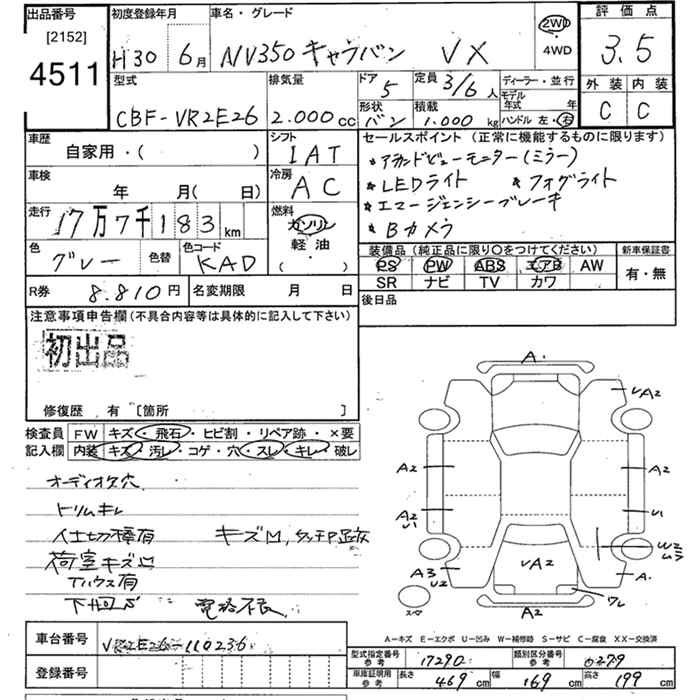 出品番号
[2152]
4511
初度登録年月
H30 6月
車名・グレード
NV350 キャラバン VX
2WD
・
4WD
評価点
3.5
外装 内装
C C
型式
CBF-VR2E26
排気量
2.000cc
ドア
5
形状
バン
定員
3/6人
積載
1.000kg
ディーラー・並行
モデル
年式 年
ハンドル 左・右
車歴
自家用・( )
車検
年 月( 日)
走行
17万7千183km
色
グレー
色替
色コード
KAD
シフト
IAT
冷房
AC
燃料
ガソリン
軽油
( ・ )
セールスポイント(正常に機能するものに限ります)
*アラウンドビューモニター(ミラー)
*LEDライト *フォグライト
*エマージェンシーブレーキ
*Bカメラ
装備品(純正品に限り○をつけてください)
PS PW ABS エアB AW
SR ナビ TV カワ
新車保証書
有・無
R券 8.810円
名変期限 月 日
後日品
注意事項申告欄(不具合内容等は具体的に記入して下さい)
初出品
修復歴 有 [箇所 ]
検査員
記入欄
FW キズ・飛石・ヒビ割・リペア跡・×要
内装 キズ・汚レ・コゲ・穴・スレ・キレ・破レ
オーディオ欠穴
トリムキレ
仕切棒有 キズM,タッチP跡有
荷室キズM
下回りS
A・
VA2
A2
A2
A2
U1
U1
W2
U3
A3
U2
VA2
A・
ワレ
A2
スペア
A-キズ E-エクボ U-凹み W-補修跡 S-サビ C-腐食 XX-交換済
車台番号 VR2E26-110236
登録番号
型式指定番号
参考
17290
類別区分番号
参考
0279
車庫証明用
参考
長さ 469cm 幅 169cm 高さ 199cm